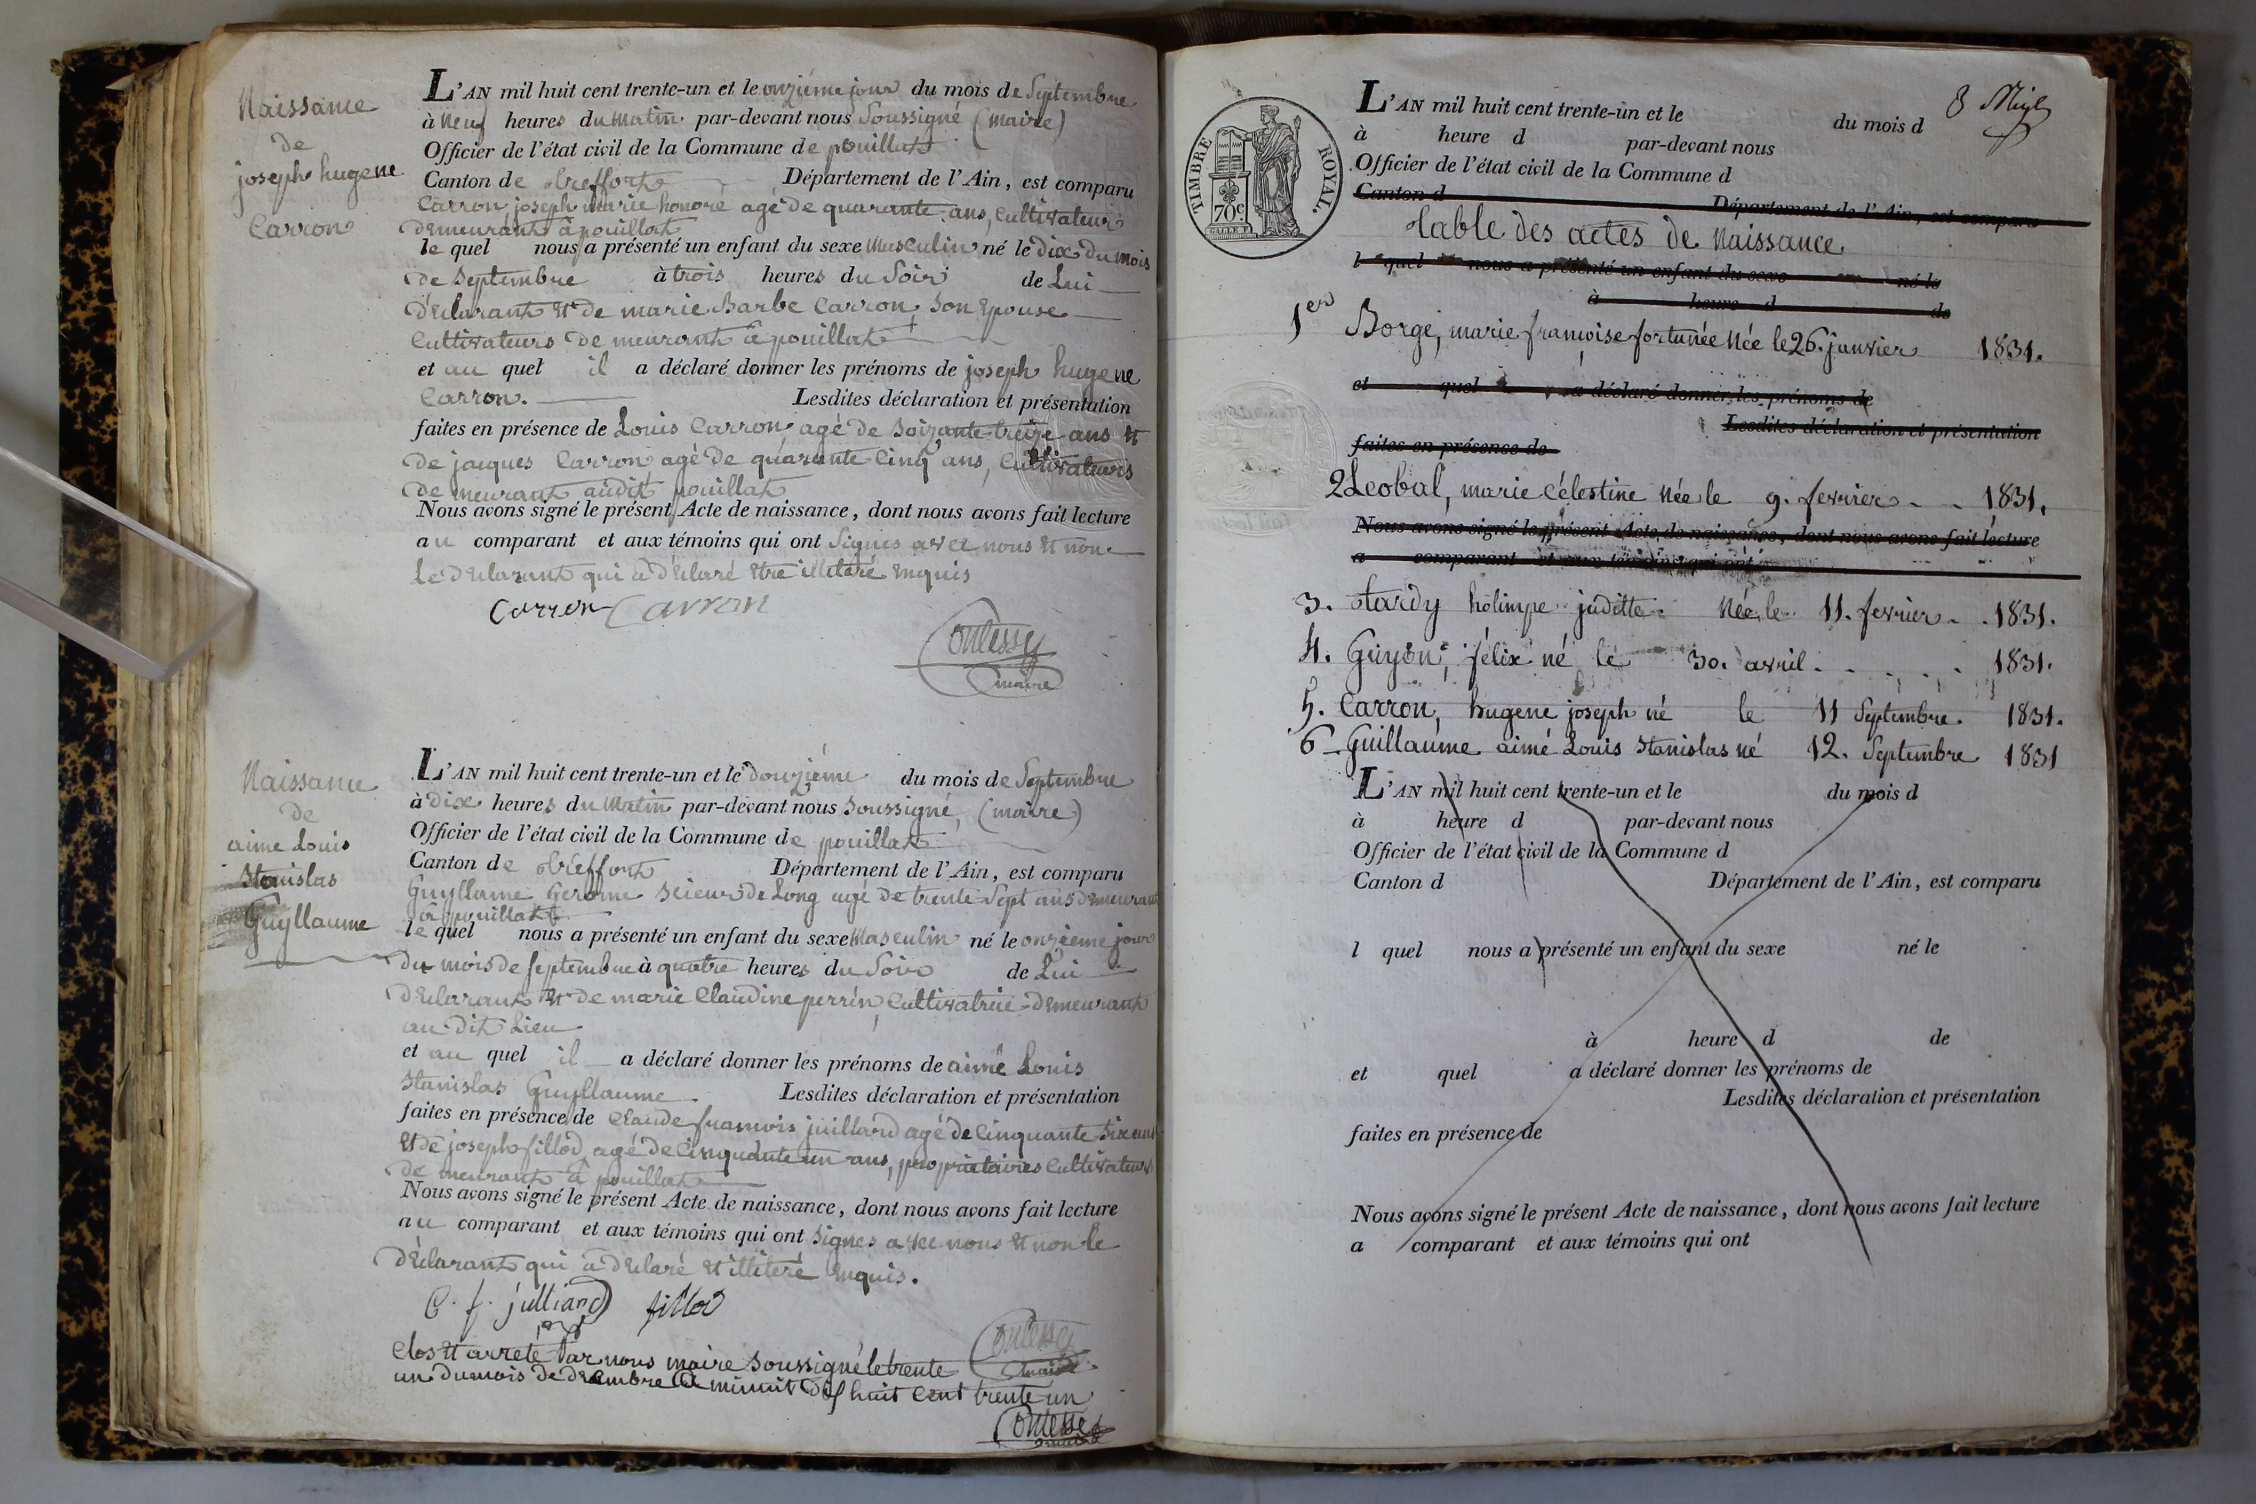 Naissance
de
joseph hugene
Carron
L'AN mil huit cent trente-un et le onziéme jour du mois de Septembre
à Neuf heures du Matin par-devant nous Soussigné (maire)
Officier de l'état civil de la Commune de pouillat
Canton de treffort Département de l'Ain, est comparu
Carron joseph marie honoré agé de quarante ans, Cultivateur
demeurant à pouillat
le quel nous a présenté un enfant du sexe Masculin né le dix du mois
de Septembre à trois heures du Soir de Lui
déclarant et de marie Barbe Carron, Son Epouse
Cultivateurs de meurant à pouillat
et au quel il a déclaré donner les prénoms de joseph hugene
Carron. Lesdites déclaration et présentation
faites en présence de Louis Carron agé de Soizante treize ans et
de jacques Carron agé de quarante Cinq ans, Cultivateurs
de meurant audit pouillat
Nous avons signé le présent Acte de naissance, dont nous avons fait lecture
au comparant et aux témoins qui ont Signés avec nous et non
Le déclarant qui a déclaré etre illiteré enquis
Carron Carron
maire
Naissance
de
aime Louis
Stanislas
Guyllaume
L'AN mil huit cent trente-un et le douziéme du mois de Septembre
à Dix heures du Matin par-devant nous Soussigné, (maire)
Officier de l'état civil de la Commune de pouillat
Canton de treffort Département de l'Ain, est comparu
Guyllame Gerome Scieur de Long agé de trente Sept ans demeurant
à pouillat
le quel nous a présenté un enfant du sexe Masculin né le onzieme jour
du mois de Septembre à quatre heures du Soir de Lui
déclarant et de marie Claudine perrin, Cultivatrice demeurant
au dit Lieu
et au quel il a déclaré donner les prénoms de aimé Louis
Stanislas Guyllaume Lesdites déclaration et présentation
faites en présence de Claude francois juillard agé de Cinquante Six ans
et de joseph fillod, agé de Cinquante un ans, propriétaires Cultivateurs
de meurant à pouillat
Nous avons signé le présent Acte de naissance, dont nous avons fait lecture
au comparant et aux témoins qui ont Signés avec nous et non le
déclarant qui a déclaré et illiteré enquis.
C. f. julliard fillod
Clos et arreté par nous maire Soussigné le trente
un du mois de décembre à minuit huit cent trente un
maire
TIMBRE ROYAL.
70 c.
L'AN mil huit cent trente-un et le du mois d
à heure d par-devant nous
Officier de l'état civil de la Commune d
Canton d Département de l'Ain, est comparu
table des actes de Naissance
l quel nous a présenté un enfant du sexe né le
à heure d de
1er Borge, marie françoise fortunée Née le 26. janvier 1831.
et quel a déclaré donner les prénoms de
Lesdites déclaration et présentation
faites en présence de
2 Leobal, marie Célestine Née le 9. fevrier 1831.
Nous avons signé le présent Acte de naissance, dont nous avons fait lecture
a comparant et aux témoins qui ont
3. tardy holimpe juditte Née le 11. fevrier 1831.
4. Guyon, félix né le 30. avril 1831.
5. Carron, hugene joseph né le 11 Septembre. 1831.
6 Guillaume aimé Louis Stanislas né 12. Septembre 1831
L'AN mil huit cent trente-un et le du mois d
à heure d par-devant nous
Officier de l'état civil de la Commune d
Canton d Département de l'Ain, est comparu
l quel nous a présenté un enfant du sexe né le
à heure d de
et quel a déclaré donner les prénoms de
Lesdites déclaration et présentation
faites en présence de
Nous avons signé le présent Acte de naissance, dont nous avons fait lecture
a comparant et aux témoins qui ont